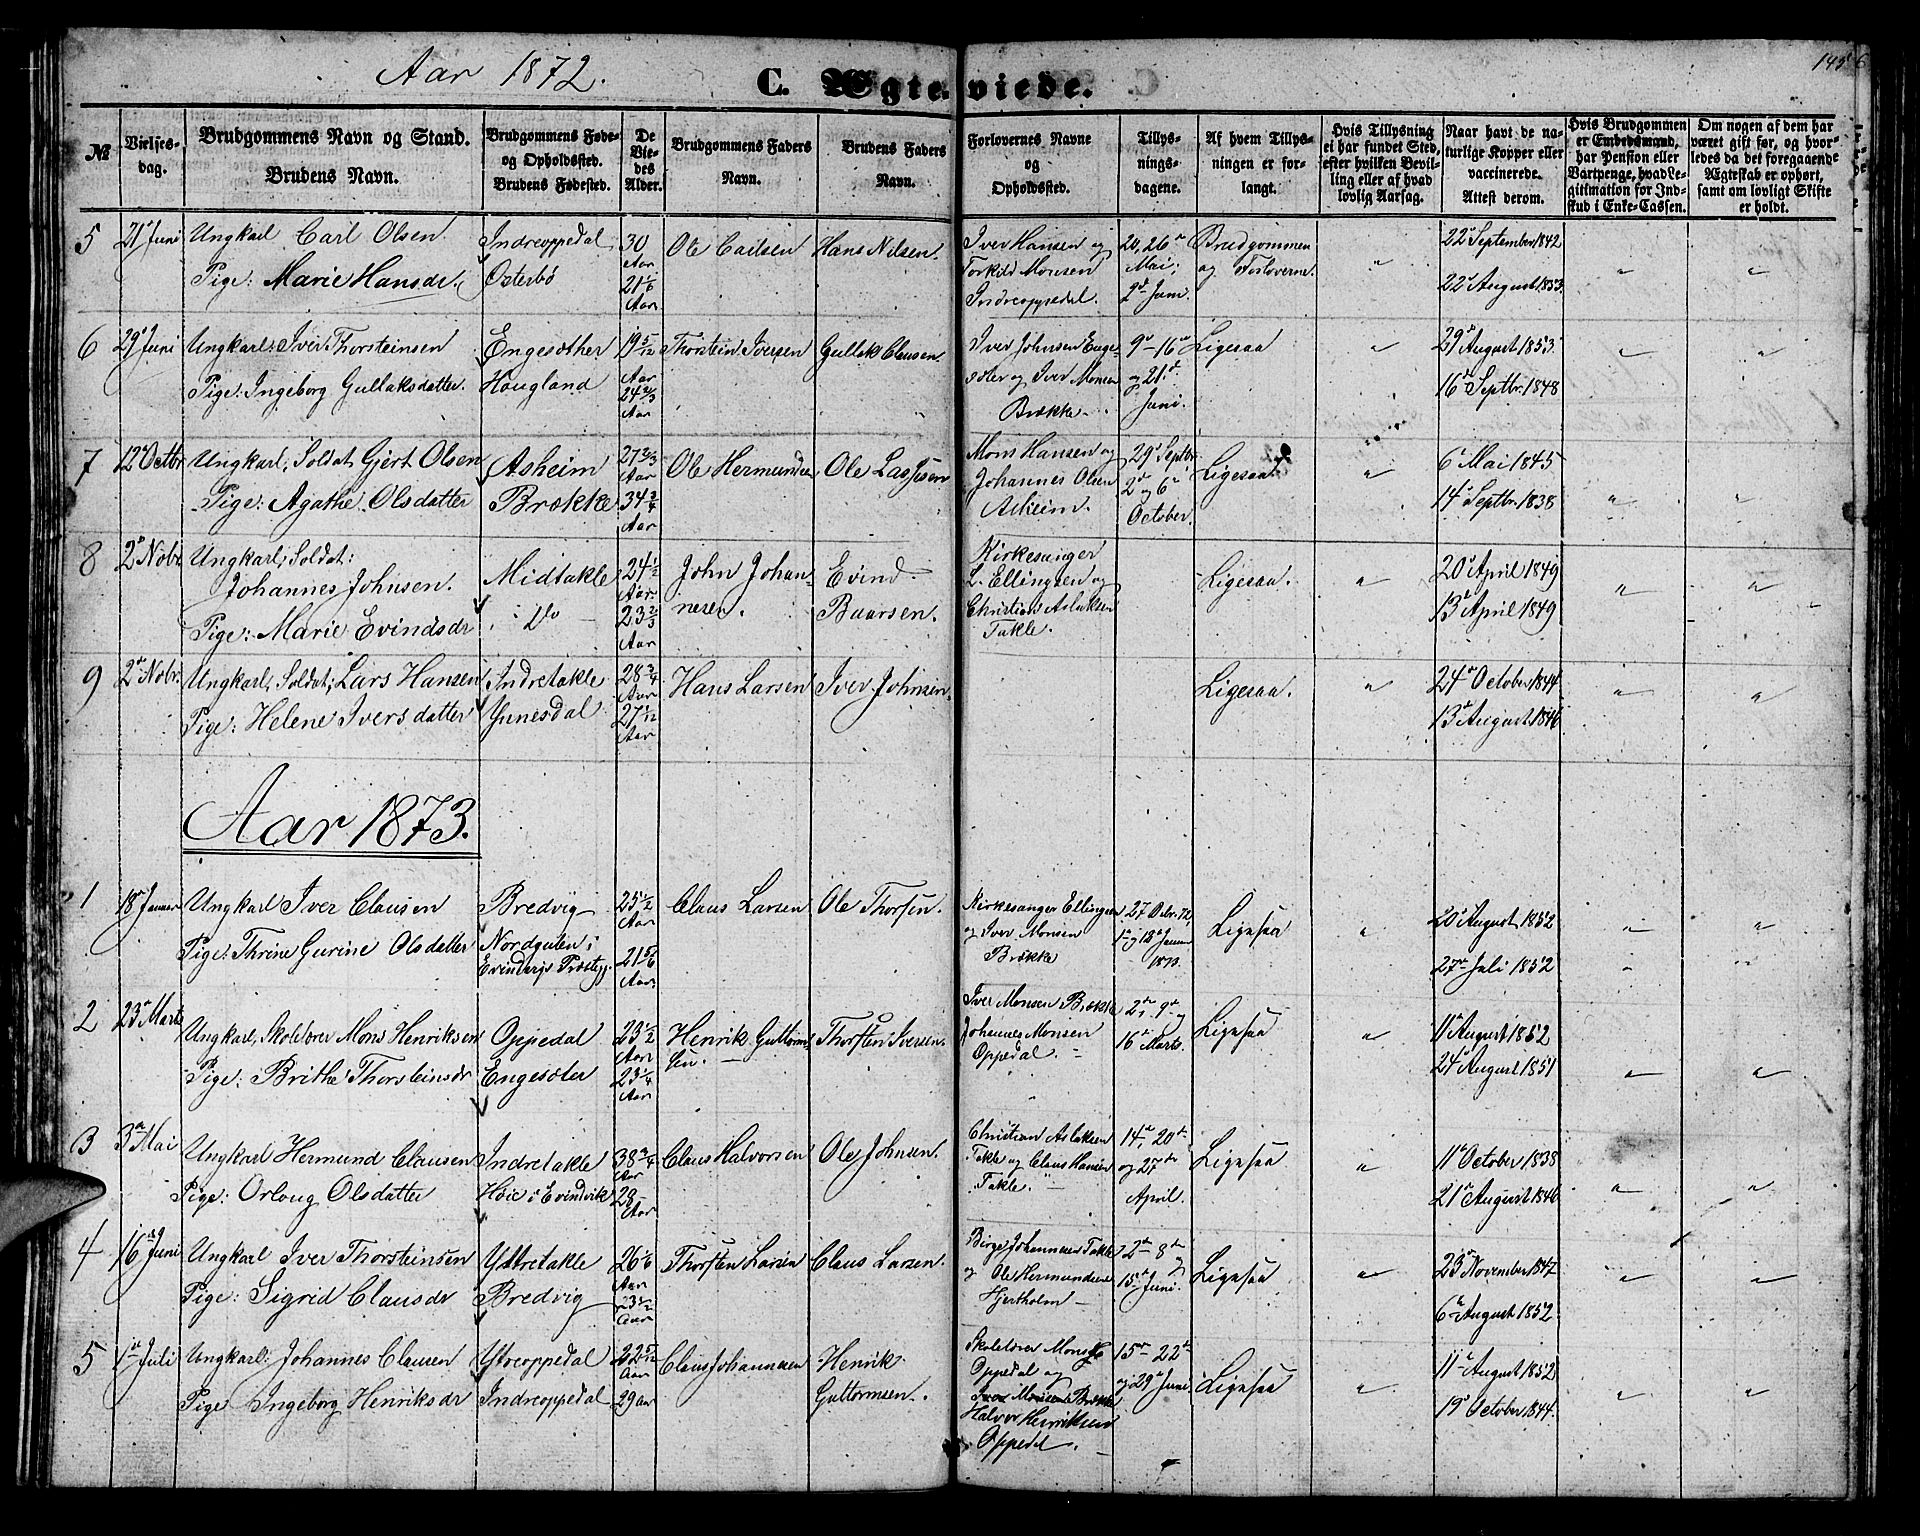 Aar 1872.
C. Ægteviede.
145
№
Vielses-
dag.
Brudgommens Navn og Stand.
Brudens Navn.
Brudgommens Føde-
og Opholdssted.
Brudens Fødested.
De
Vie-
des
Alder.
Brudgommens Faders
Navn.
Brudens Faders
Navn.
Forlovernes Navne
og
Opholdssted.
Tillys-
nings-
dagene.
Af hvem Tillys-
ningen er for-
langt.
Hvis Tillysning
ei har fundet Sted,
efter hvilken Bevil-
ling eller af hvad
lovlig Aarsag.
Naar havt de na-
turlige Kopper eller
vaccinerede.
Attest derom.
Hvis Brudgommen
er Embedsmand,
har Pension eller
Vartpenge, hvad Le-
gitimation for Ind-
skud i Enke-Cassen.
Om nogen af dem har
været gift før, og hvor-
ledes da det foregaaende
Ægteskab er ophørt,
samt om lovligt Skifte
er holdt.
5
21 Juni
Ungkarl Carl Olsen
Pige: Marie Hansdr.
Indreoppedal
Østerbø
30
Aar
21 1/6
Aar
Ole Carlsen
Hans Nilsen.
Iver Hansen og
Torkild Monsen
Indreoppedal.
20, 26de
Mai;
2de Juni.
Brudgommen
og Forloverne.
"
22de September 1842
22de August 1853.
"
"
6
29de Juni
Ungkarl: Iver Thorsteinsen
Pige: Ingeborg Gullaksdatter.
Engesæther
Hougland
19 5/12
Aar
24 2/3
Aar
Thorstein Iversen
Gullak Clausen
Iver Johnsen Enge-
sæter og Iver Monsen
Brække.
9de - 16de
og 21de
Juni.
Ligesaa
"
29 August 1853.
16de Septbr. 1848
"
"
7
12te Octbr
Ungkarl, Soldat, Gjert Olsen
Pige: Agathe Olsdatter
Asheim
Brække
27 2/3
Aar
34 3/4
Aar
Ole Hermundsen
Ole Lassesen
Mons Hansen og
Johannes Olsen
Asheim.
29de Septbr.
2de og 6te
October.
Ligesaa
"
6te Mai 1845
14de Septbr. 1838
"
"
8
2de Nobr
Ungkarl; Soldat:
Johannes Johnsen.
Pige: Marie Evindsdr
Midtakle
Do
24 1/2
Aar
23 2/3
Aar
John Johan-
nesen.
Evind
Baarsen.
Kirkesanger
L. Ellingsen og
Christian Aslaksen
Takle.
Ligesaa.
"
20de April 1849
13de April 1849
"
"
9
2de Nobr.
Ungkarl, Soldat, Lars Hansen
Pige: Helene Iversdatter
Indretakle
Ynnesdal
28 3/4
Aar
27 1/12
Aar
Hans Larsen
Iver Johnsen.
Ligesaa.
"
24de October 1844
13de August 1846
"
"
Aar 1873.
1
18de Januar
Ungkarl Iver Clausen
Pige: Thrine Gurine Olsdatter
Bredvig
Nordgulen i
Evindvigs Præstgj.
25 1/2
Aar
21 5/6
Aar
Claus Larsen
Ole Thorsen.
Kirkesanger Ellingsen
og Iver Monsen
Brække
27 Octbr. 72,
1ste og 12te Januar
1873.
Ligesaa
20de August 1852
27de Juli 1852
"
"
"
"
2
23de Marts
Ungkarl, Skolelærer Mons Henriksen
Pige: Brithe Thorsteinsdr
Oppedal
Engesæter
23 1/2
Aar
23 1/4
Aar
Henrik Guttorm-
sen.
Thorsten Iversen.
Iver Monsen Brække
Johannes Monsen
Oppedal
2de, 9de og
16de Marts.
Ligesaa
"
11te August 1852
24de August 1851
"
"
3
3de Mai
Ungkarl Hermund Clausen
Pige: Orloug Olsdatter
Indretakle
Høie i Evindvik
38 3/4
Aar
28
Aar
Claus Halvorsen
Ole Johnsen.
Christian Aslaksen
Takle og Claus Hansen
Takle.
14de, 20de
og 27de
April.
Ligesaa
"
11te October 1838
21de August 1846
"
"
4
16de Juni
Ungkarl Iver Thorsteinsen
Pige: Sigrid Clausdr
Yttretakle
Bredvig
26 1/6
Aar
23 1/2
Aar
Thorsten Larsen
Claus Larsen.
Birge Johannesen Takle
og Ole Hermundsen
Hjertholm
2de - 8de og
15de Juni.
Ligesaa
"
23de November 1847
6te August 1852.
"
"
5
1ste Juli
Ungkarl: Johannes Clausen
Pige Ingeborg Henriksdr
Ytreoppedal
Indreoppedal
22 5/12
Aar
29 aar
Claus Johannesen
Henrik
Guttormsen.
Skolelærer Mons
Oppedal og
Iver Monsen Brække
Halvor Henriksen
Oppedal.
15de 22de
og 29de Juni
Ligesaa
"
11te August 1852
19de October 1844.
"
"